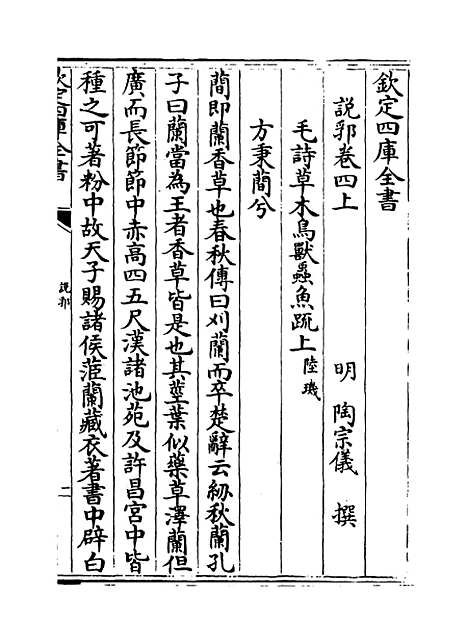 欽定四庫全書
説郛卷四上 明 陶宗儀 撰
毛詩草木鳥獸蟲魚疏上 陸璣
方秉蕑兮
蕑即蘭香草也春秋傳曰刈蘭而卒楚辭云紉秋蘭孔
子曰蘭當為王者香草皆是也其莖葉似藥草澤蘭但
廣而長節節中赤高四五尺漢諸池苑及許昌宮中皆
種之可著粉中故天子賜諸侯茝蘭藏衣著書中辟白
欽定四庫全書
説郛
二